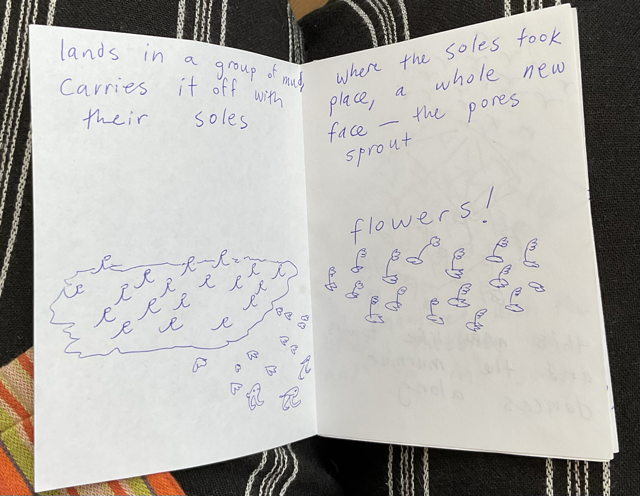 lands in a group of mud,
carries it off with
their soles
where the soles took
place, a whole new
face — the pores
sprout
flowers!